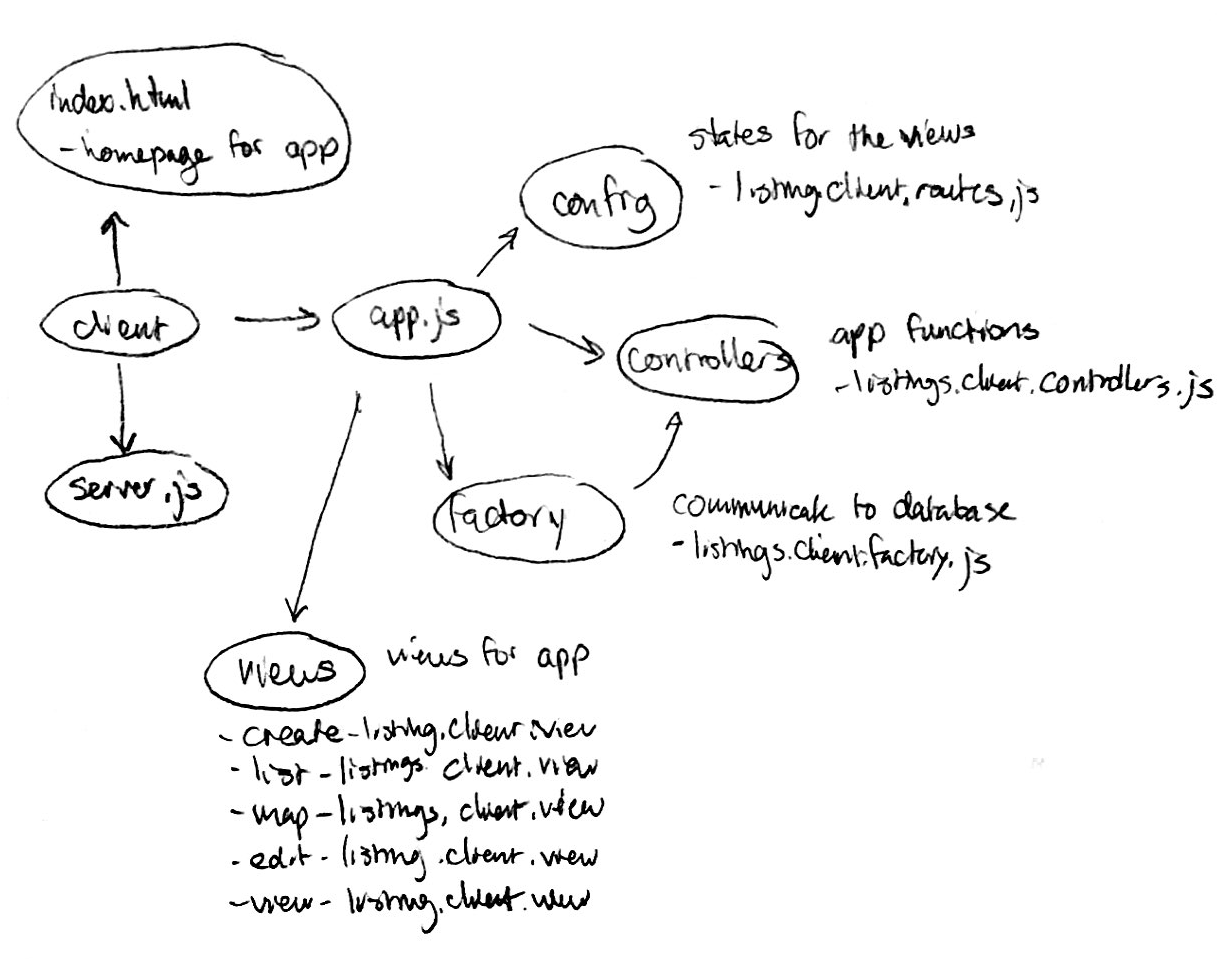 index.html
- homepage for app
states for the views
- listing.client.routes.js
config
client
app.js
controllers
app functions
- listings.client.controllers.js
server.js
factory
communicate to database
- listings.client.factory.js
views
views for app
- create-listing.client.view
- list-listings.client.view
- map-listings.client.view
- edit-listing.client.view
- view-listing.client.view